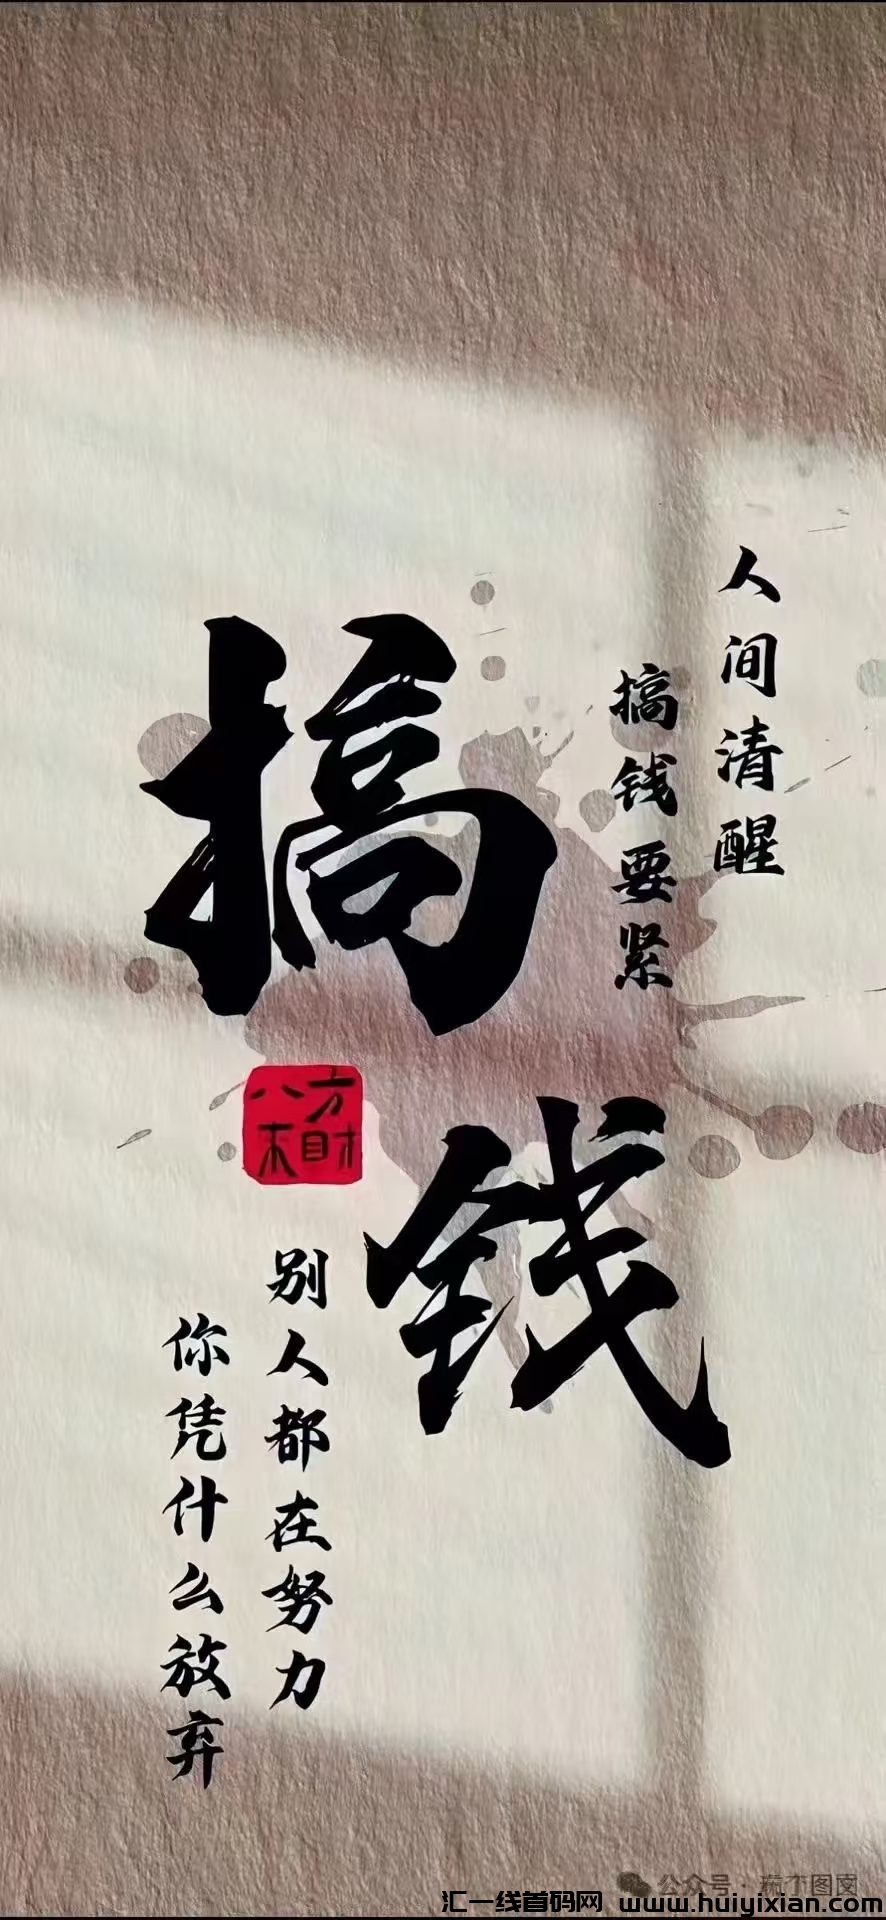 人间清醒
搞钱要紧
搞
钱
八方来财
别人都在努力
你凭什么放弃
汇一线首码网 www.huiyixian.com